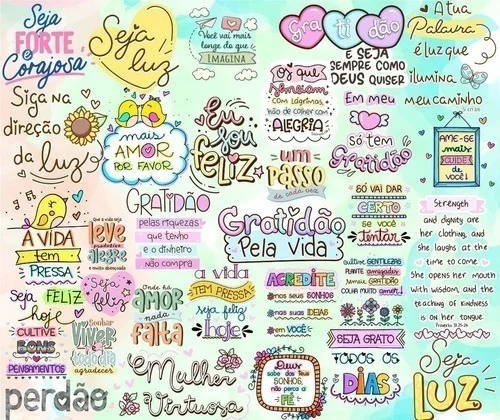 Seja
FORTE
e
Corajosa
Seja
luz
Você vai mais
longe do que
IMAGINA
Gratidão
E SEJA
SEMPRE COMO
DEUS QUISER
A tua
Palavra
é luz que
ilumina
meu caminho
Siga na
direção
da luz
mais
AMOR
POR FAVOR
Eu
sou
FELIZ
Os que
semeiam
com lágrimas,
não de colher com
ALEGRIA
Em meu
só tem
Gratidão
AME-SE
mais
de você!
um
PASSO
de cada vez
A VIDA
tem
PRESSA
Que a vida seja
leve
produtiva
alegre
e muito abençoada
GRATIDÃO
pelas riquezas
que tenho
e o dinheiro
não compra
Gratidão
Pela Vida
SÓ VAI DAR
CERTO
SE VOCÊ
Tentar
Strength
and dignity are
her clothing, and
she laughs at the
time to come
She opens her mouth
with wisdom, and the
teaching of kindness
is on her tongue.
Proverbs 31:25-26
Seja FELIZ
hoje
Seja
feliz
Onde há
AMOR
nada
falta
a vida
TEM PRESSA
seja feliz
hoje
ACREDITE
nos seus SONHOS
nas suas IDEIAS
em VOCÊ
cultive GENTILEZAS
PLANTE amizades
semeie GRATIDÃO
COLHA muito amor
CULTIVE
BONS
PENSAMENTOS
Sonhar
VIVER
e todo dia
agradecer
SEJA GRATO
TODOS OS
DIAS
perdão
Mulher
Virtuosa
Deus
sabe dos seus
SONHOS,
não perca a
FÉ
Seja
LUZ